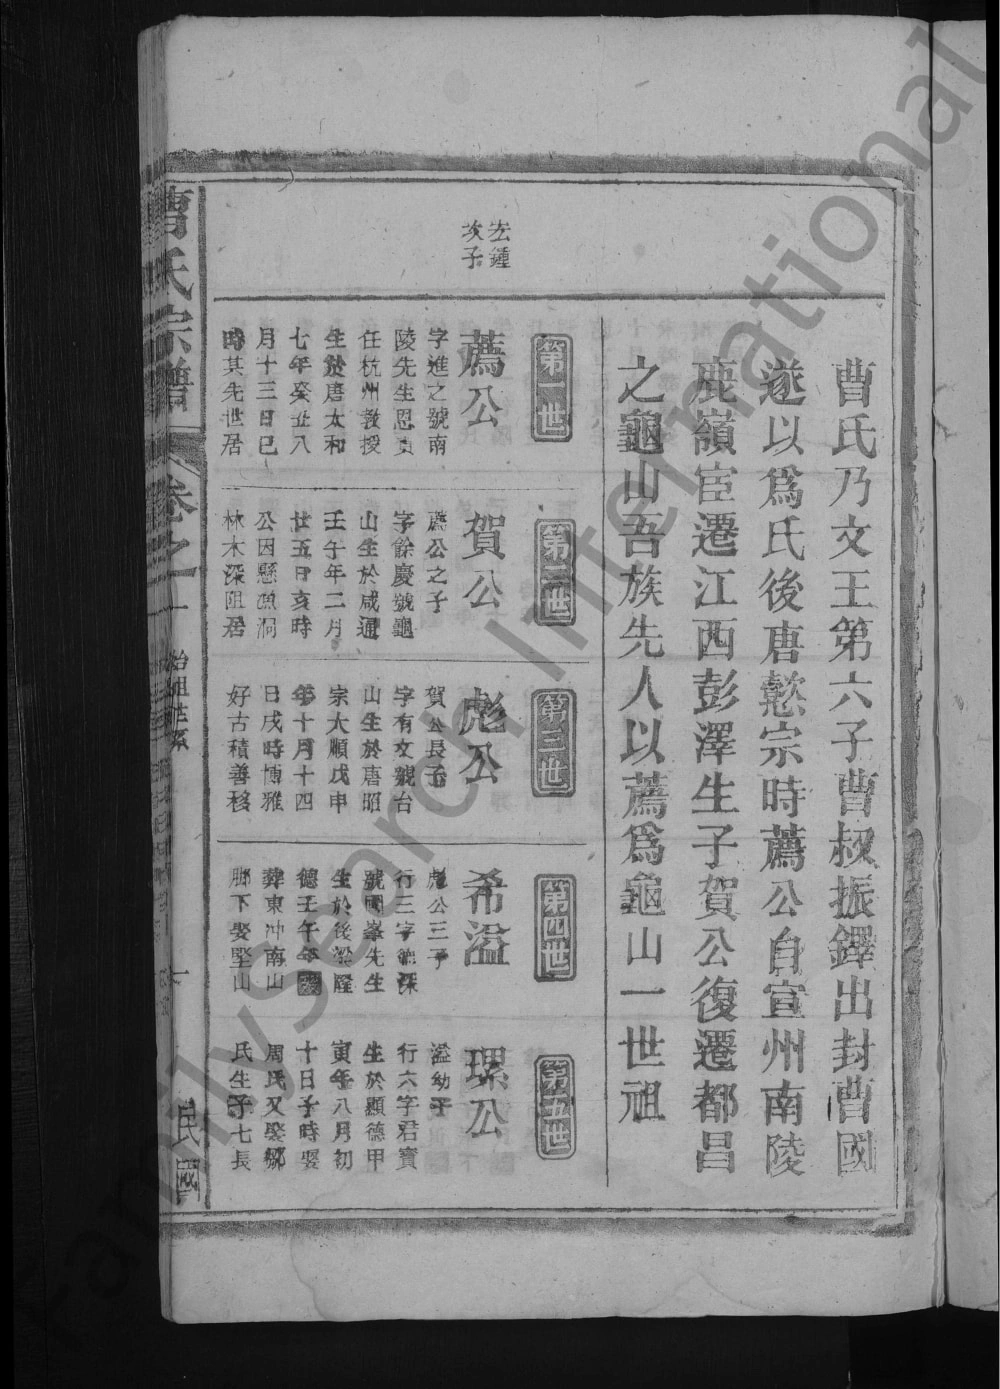 曹氏乃文王第六子曹叔振鐸出封曹國
遂以爲氏後唐懿宗時薦公自宣州南陵
鹿嶺宦遷江西彭澤生子賀公復遷都昌
之龜山吾族先人以薦爲龜山一世祖
宏鍾
次子
第一世
薦公
字進之號南
陵先生恩貢
任杭州教授
生於唐太和
七年癸丑八
月十三日巳
時其先世居
第二世
賀公
薦公之子
字餘慶號龜
山生於咸通
壬午年二月
廿五日亥時
公因懸魚洞
林木深阻居
第三世
彪公
賀公長子
字有文號台
山生於唐昭
宗大順戊申
年十月十四
日戌時博雅
好古積善移
第四世
希溢
彪公三子
行三字德深
號國峯先生
生於後梁隆
德壬午年
葬東冲南山
腳下娶堅山
第五世
環公
溢幼子
行六字君寶
生於顯德甲
寅年八月初
十日子時娶
周氏又娶鄉
氏生子七長
曹氏宗譜
卷之一
始祖世系
一
民國
FamilySearch International